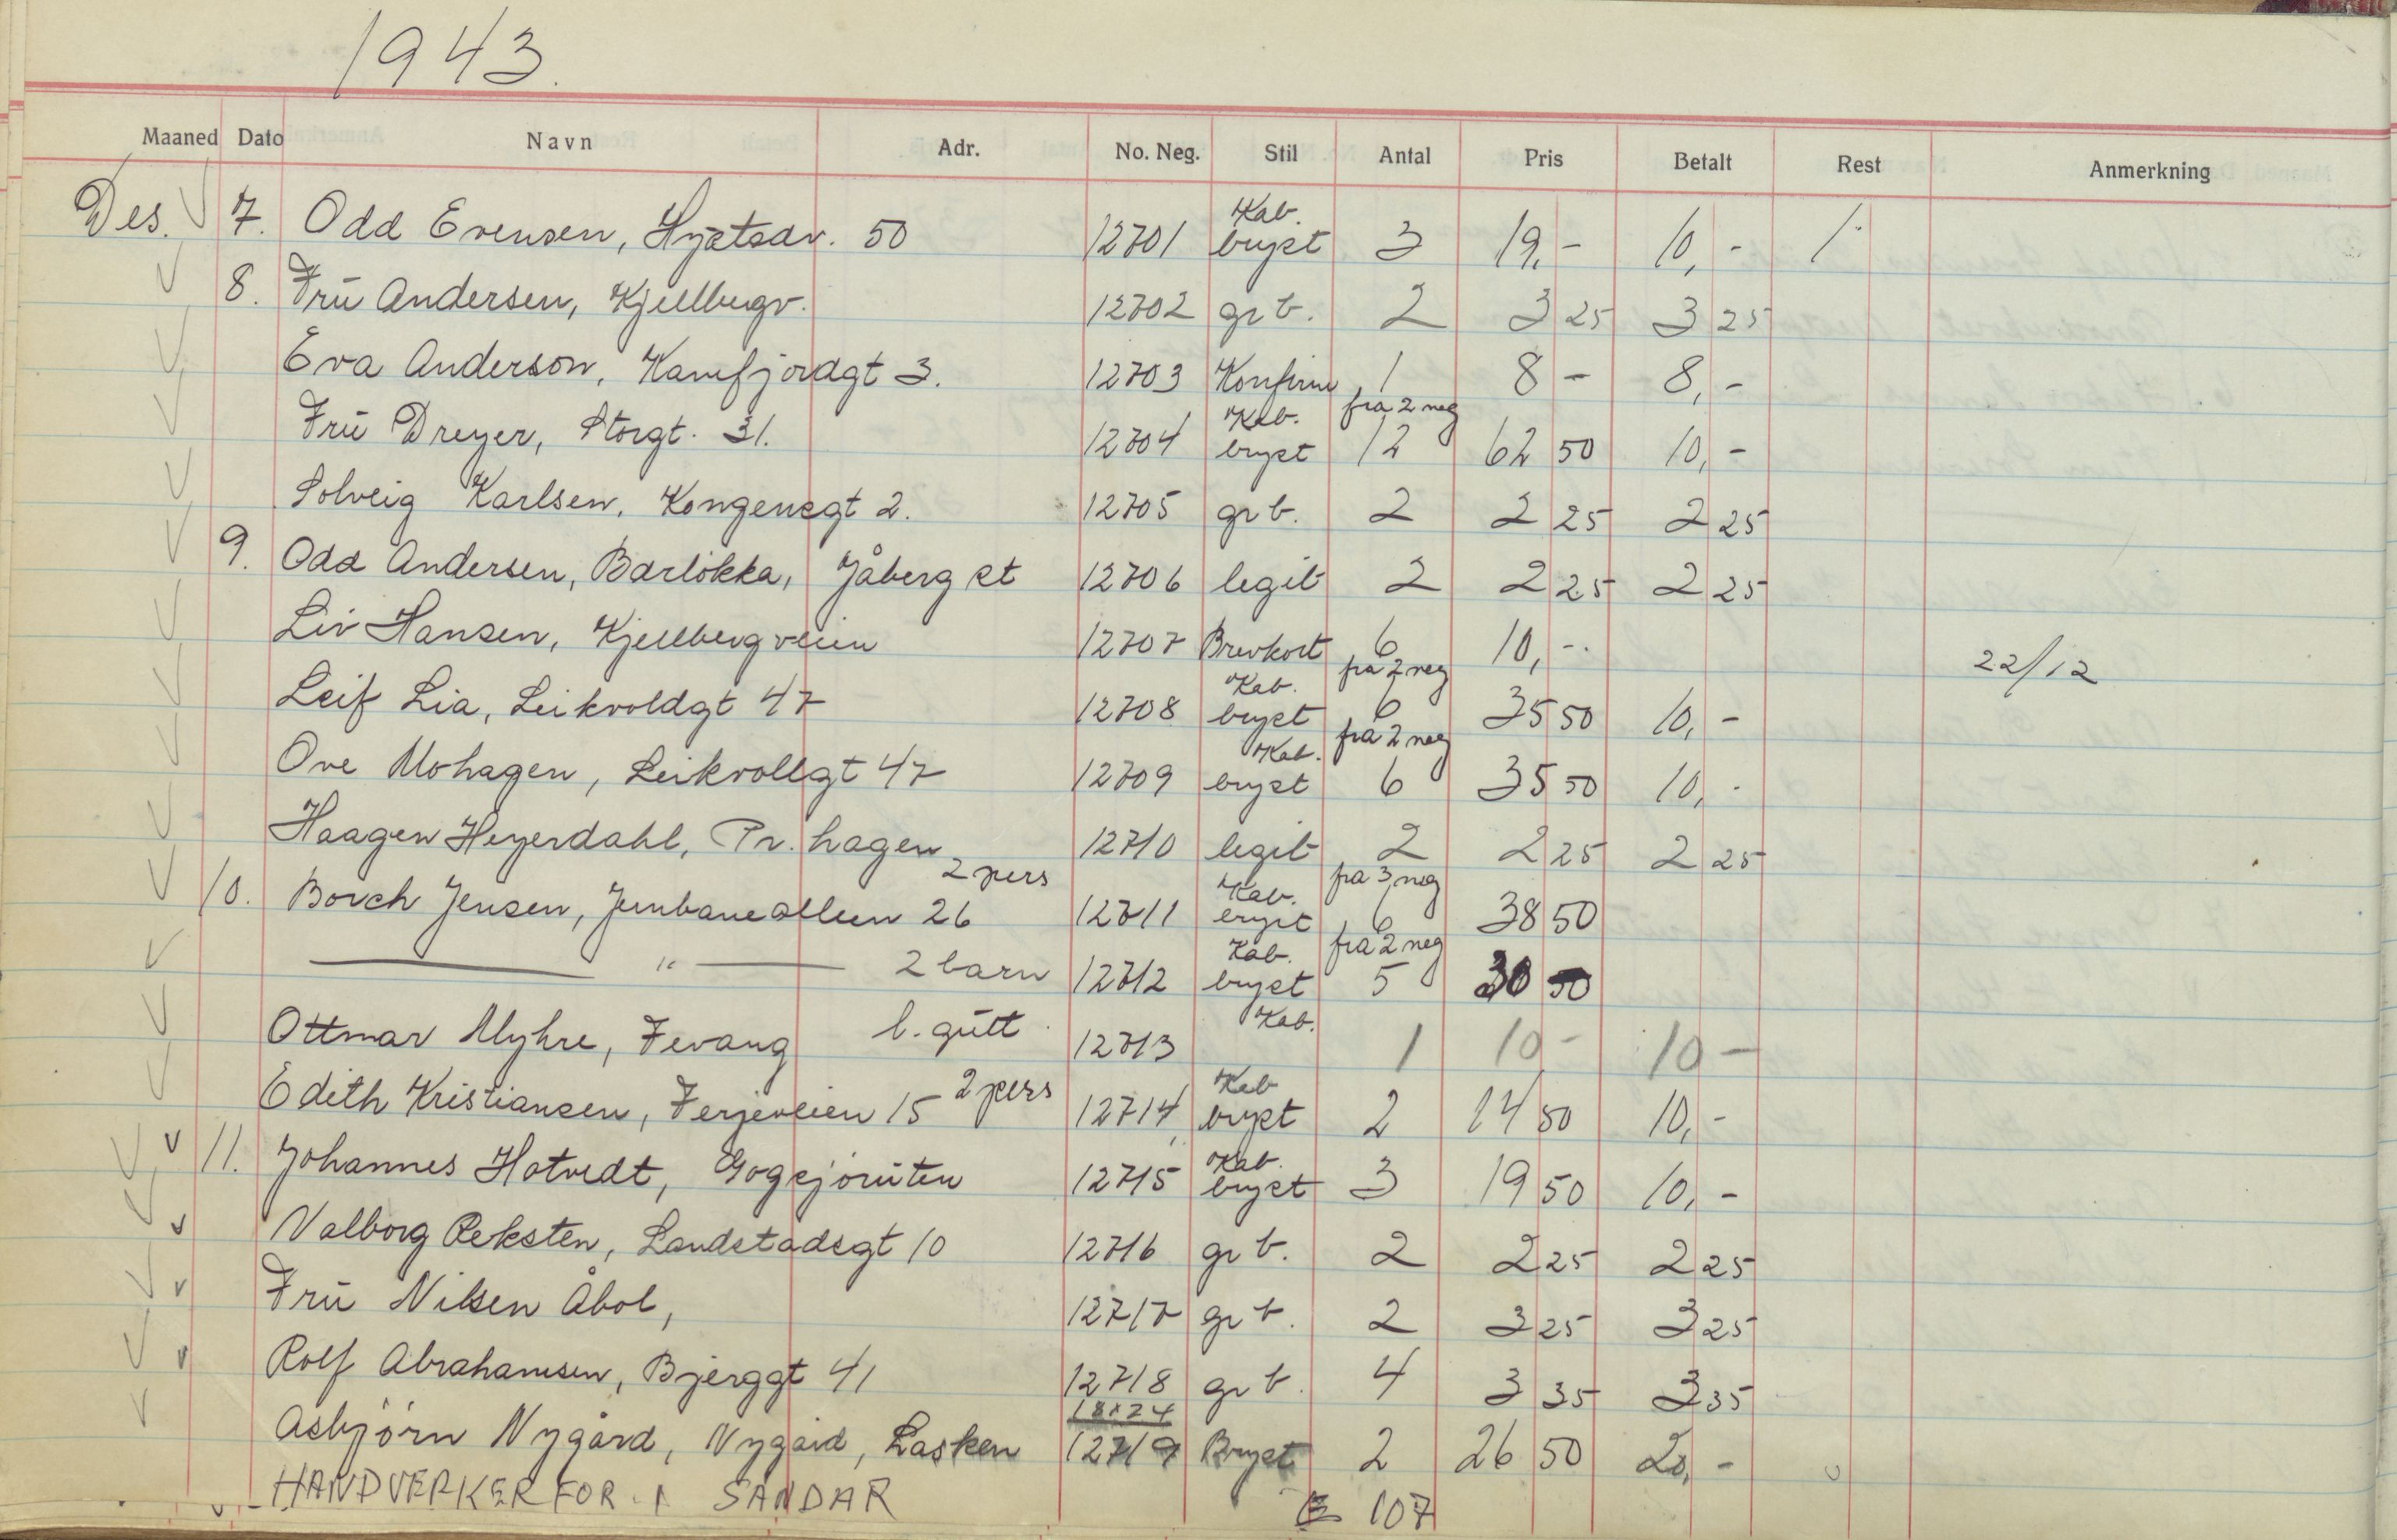 1943.
Maaned Dato Navn Adr. No. Neg. Stil Antal Pris Betalt Rest Anmerkning
Des. 7. Odd Evensen, Hystadv. 50 12701 Kab. bryst 3 19,- 10,-
8. Frū Andersen, Kjellbergv. 12702 gr b. 2 3 25 3 25
Eva Anderson, Kamfjordgt 3. 12703 Konfirm 1 8 - 8,-
Frū Dreyer, Storgt. 31. 12704 Kab. bryst fra 2 neg 12 62 50 10,-
Solveig Karlsen, Kongensgt 2. 12705 gr b. 2 2 25 2 25
9. Odd Andersen, Barløkka, Jåberg st 12706 legit 2 2 25 2 25
Liv Hansen, Kjellbergveien 12707 Brevkort 6 10,- 22/12
Leif Lia, Leikvoldgt 47 12708 Kab. bryst fra 2 neg 6 35 50 10,-
Ove Mohagen, Leikvollgt 47 12709 Kab. bryst fra 2 neg 6 35 50 10,-
Haagen Heyerdahl, Pr. hagen 12710 legit 2 2 25 2 25
10. Borch Jensen, Jernbanealleen 26 2 pers 12711 Kab. bryst fra 3 neg 6 38 50
— " — 2 barn 12712 Kab. bryst fra 2 neg 5 30 50
Ottmar Myhre, Fevang l. gūtt 12713 Kab. 1 10 - 10 -
Edith Kristiansen, Ferjeveien 15 2 pers 12714 Kab bryst 2 14 50 10,-
11. Johannes Hotvedt, Gogsjørūten 12715 Kab. bryst 3 19 50 10,-
Valborg Reksten, Landstadsgt 10 12716 gr b. 2 2 25 2 25
Frū Nilsen Åbol, 12717 gr b. 2 3 25 3 25
Rolf Abrahamsen, Bjerggt 41 12718 gr b. 4 3 35 3 35
Asbjørn Nygård, Nygård, Lasken 18x24 12719 Bryst 2 26 50 20,-
HANDVERKERFOR. I SANDAR 107